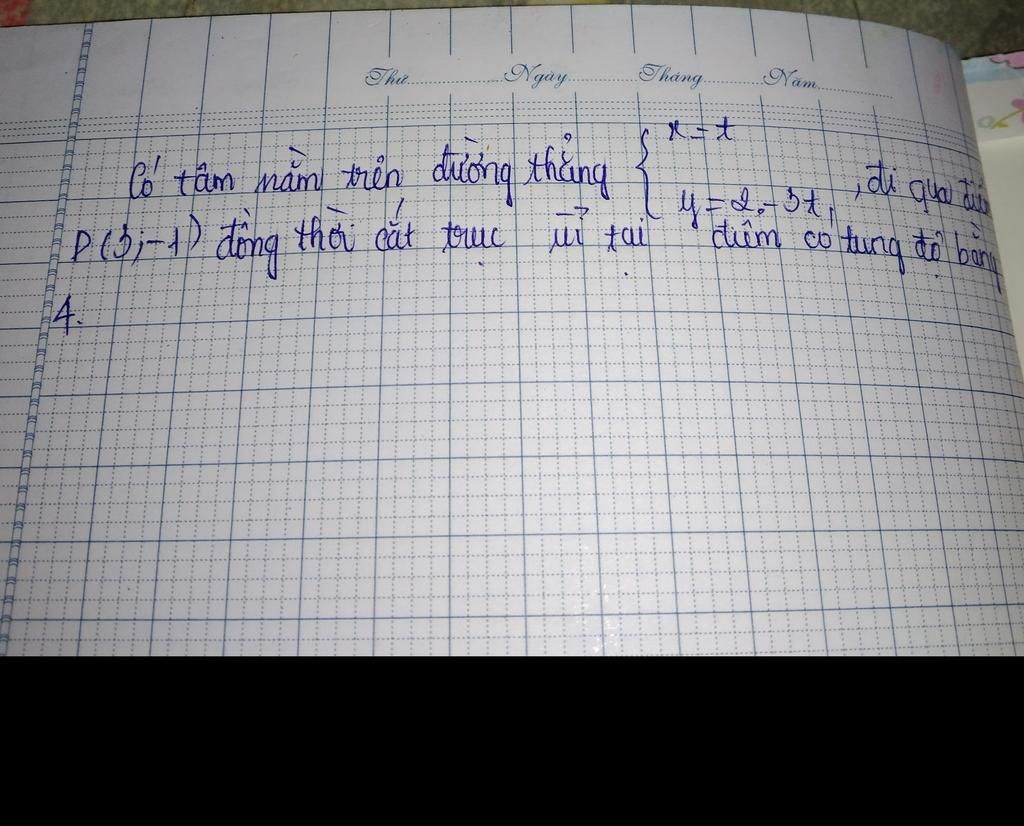 Thứ............Ngày............Tháng............Năm............
Có tâm nằm trên đường thẳng { x = t
y = 2 - 3t , đi qua điểm
P(3; -1) đồng thời cắt trục tại điểm có tung độ bằng
4.